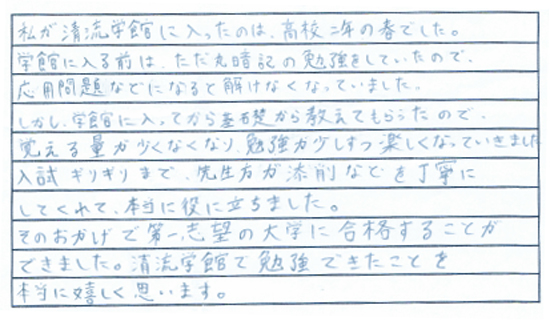 私が清流学館に入ったのは、高校二年の春でした。
学館に入る前は、ただ丸暗記の勉強をしていたので、
応用問題などになると解けなくなっていました。
しかし、学館に入ってから基礎から教えてもらったので、
覚える量が少くなくなり、勉強が少しずつ楽しくなっていきました
入試ギリギリまで、先生方が添削などを丁寧に
してくれて、本当に役に立ちました。
そのおかげで第一志望の大学に合格することが
できました。清流学館で勉強できたことを
本当に嬉しく思います。